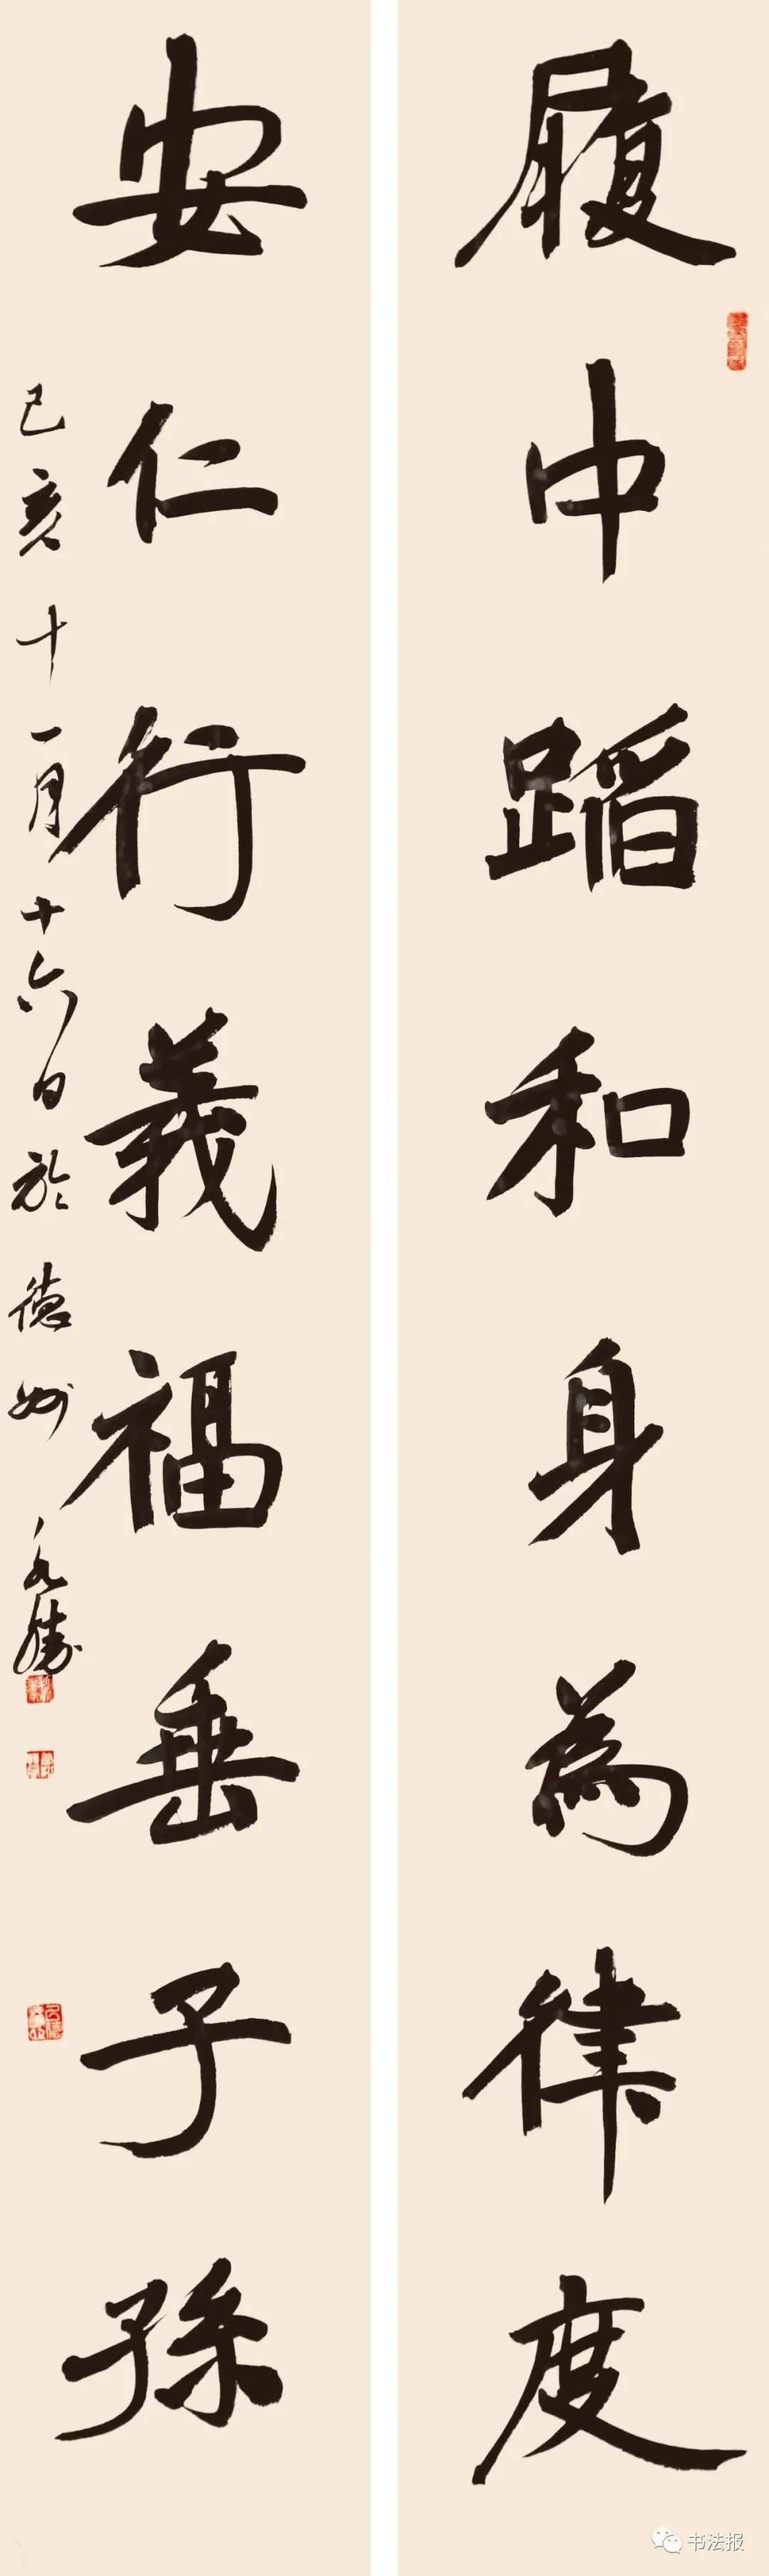 履中蹈和身為律度
安仁行義福垂子孫
己亥十一月十六日於德州永勝
书法报